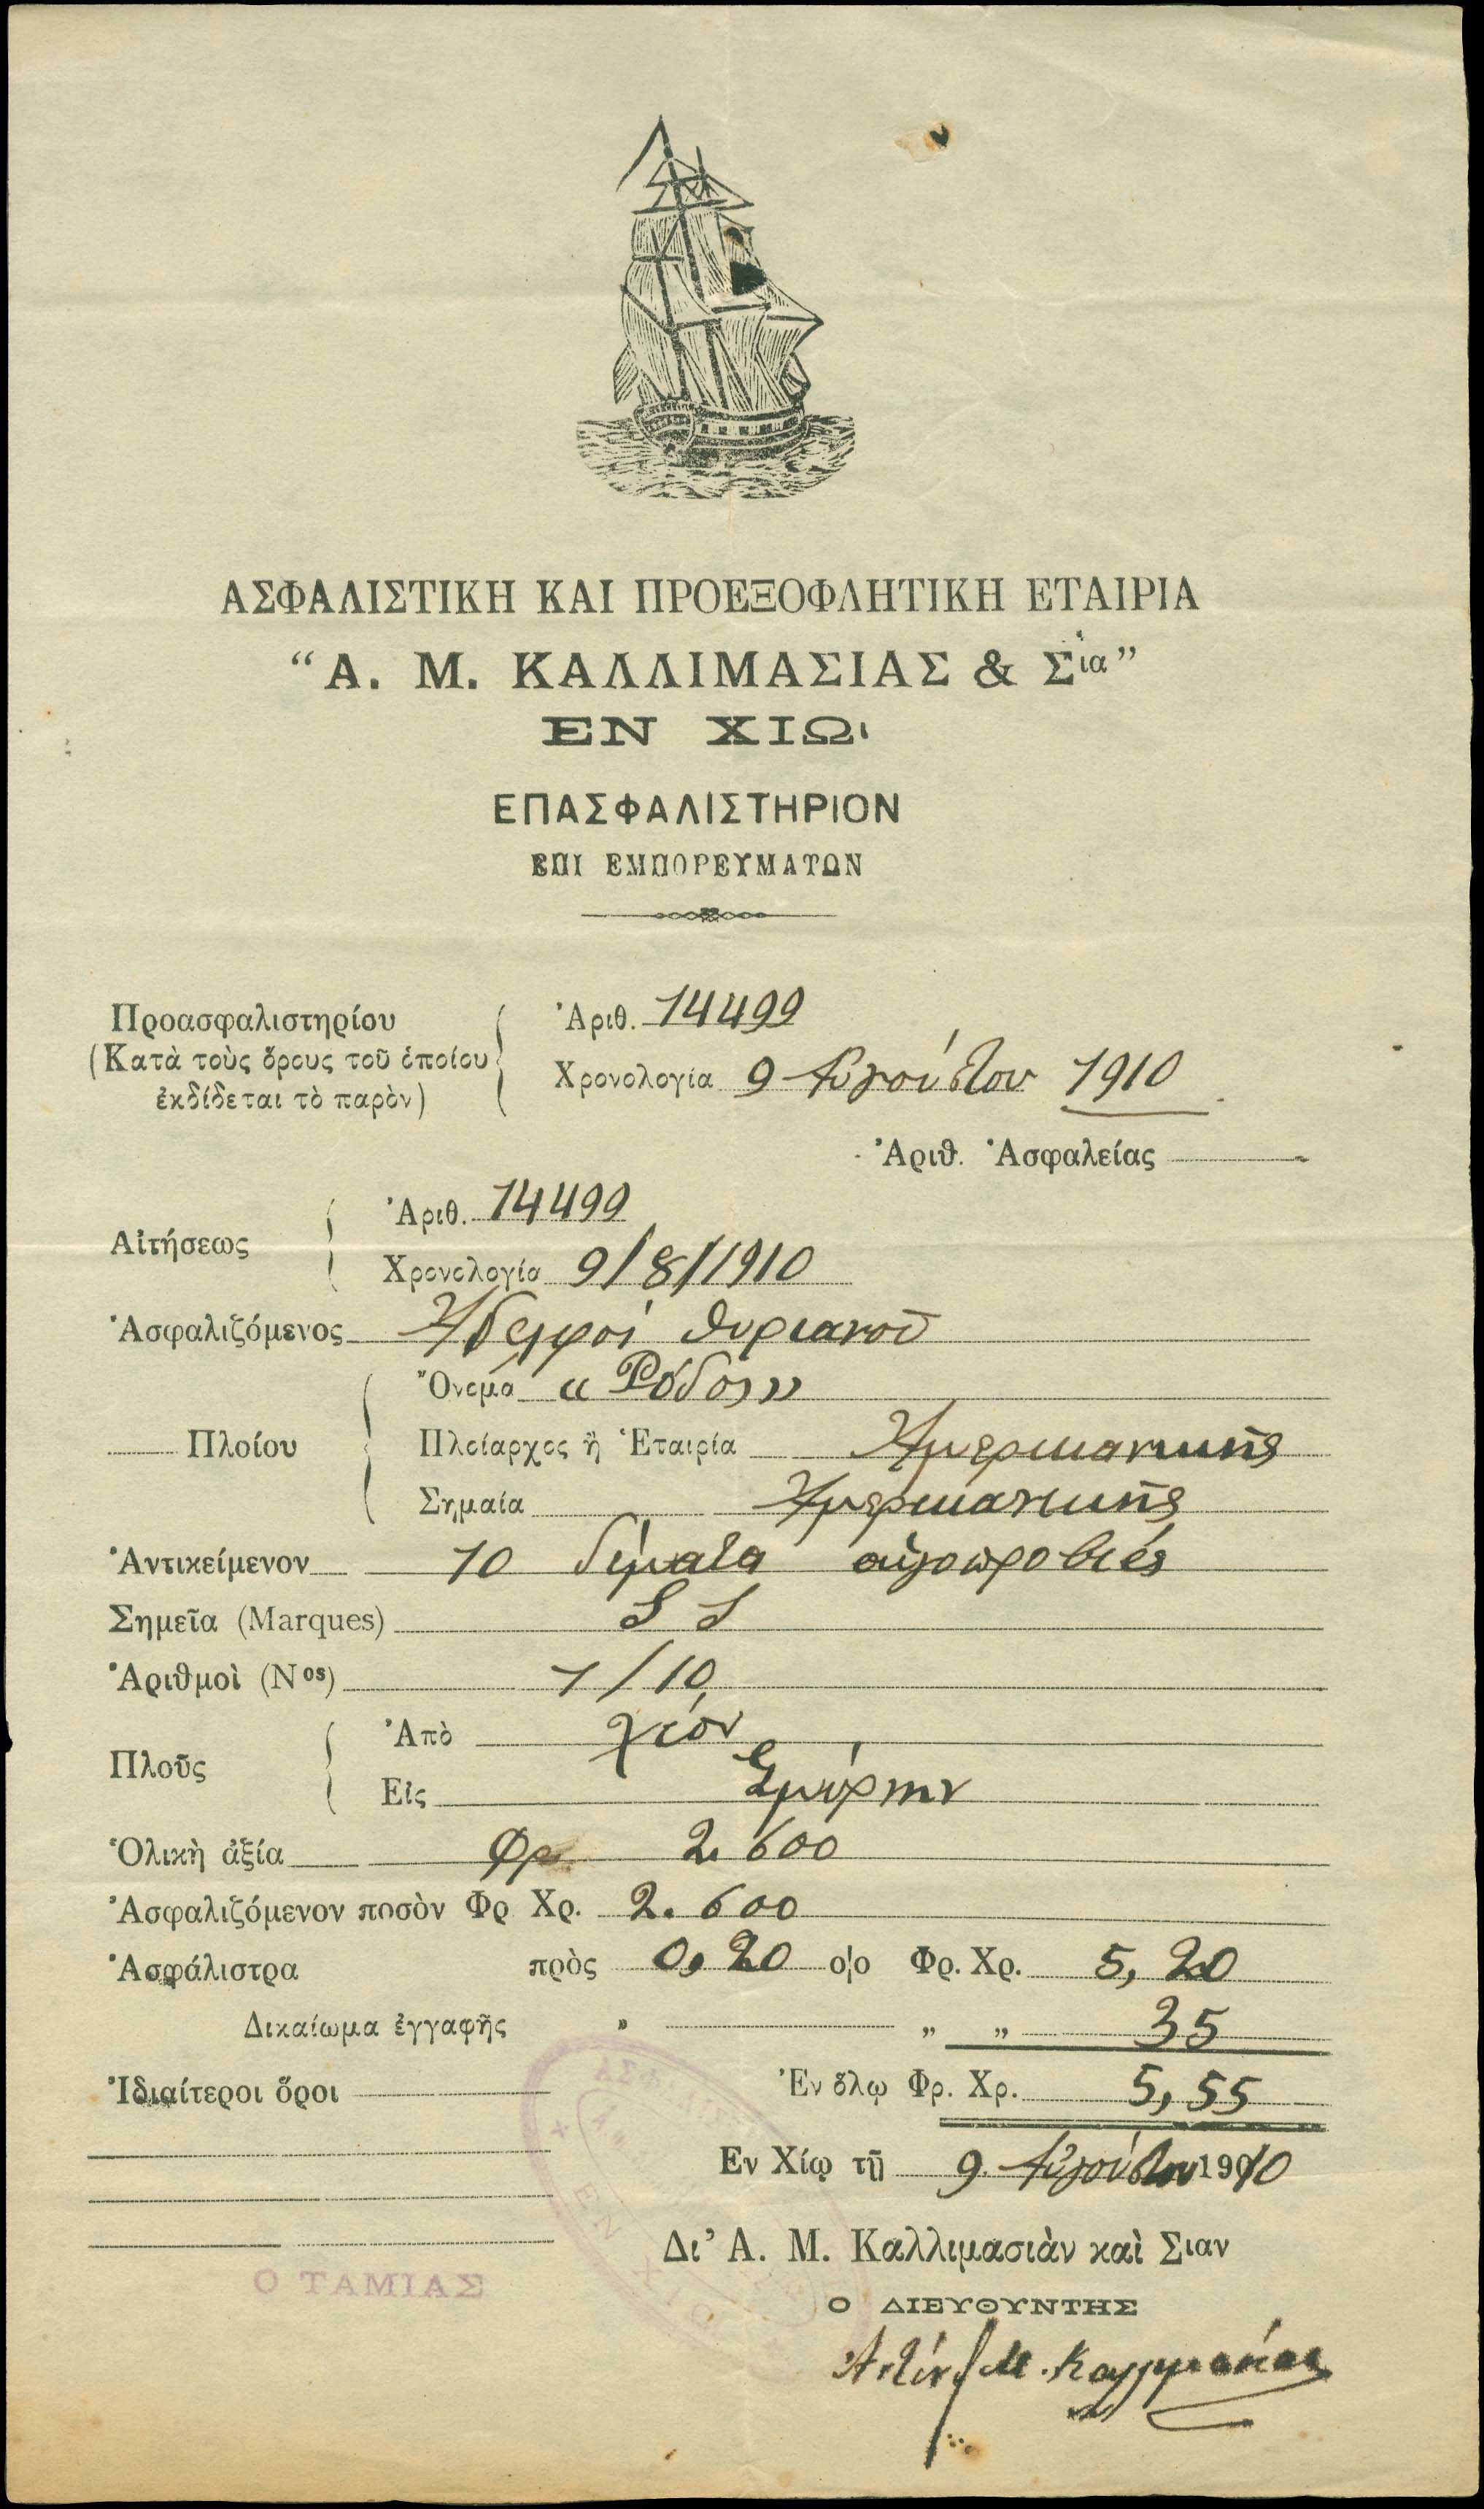 ΑΣΦΑΛΙΣΤΙΚΗ ΚΑΙ ΠΡΟΕΞΟΦΛΗΤΙΚΗ ΕΤΑΙΡΙΑ
“Α. Μ. ΚΑΛΛΙΜΑΣΙΑΣ & Σία”
ΕΝ ΧΙΩι
ΕΠΑΣΦΑΛΙΣΤΗΡΙΟΝ
ΕΠΙ ΕΜΠΟΡΕΥΜΑΤΩΝ
Προασφαλιστηρίου
(Κατὰ τοὺς ὅρους τοῦ ὁποίου
ἐκδίδεται τὸ παρὸν)
Ἀριθ. 14499
Χρονολογία 9 Αὐγούστου 1910
Ἀριθ. Ἀσφαλείας
Αἰτήσεως
Ἀριθ. 14499
Χρονολογία 9/8/1910
Ἀσφαλιζόμενος Ἀδελφοί Θυριανοῦ
Πλοίου
Ὄνομα «Ρόδος»
Πλοίαρχος ἢ Ἑταιρία Ἀμερικανικῆς
Σημαία Ἀμερικανικῆς
Ἀντικείμενον 10 δέματα αἰγοπροβιές
Σημεῖα (Marques) S S
Ἀριθμοὶ (Nos) 1/10
Πλοῦς
Ἀπὸ Χίον
Εἰς Σμύρνην
Ὁλικὴ ἀξία Φρ 2.600
Ἀσφαλιζόμενον ποσὸν Φρ Χρ. 2.600
Ἀσφάλιστρα πρὸς 0,20 ο/ο Φρ. Χρ. 5,20
Δικαίωμα ἐγγαφῆς „ „ „ 35
Ἰδιαίτεροι ὅροι
Ἐν ὅλῳ Φρ. Χρ. 5,55
Εν Χίῳ τῇ 9 Αὐγούστου 1910
Δι’ Α. Μ. Καλλιμασιὰν καὶ Σιαν
Ο ΤΑΜΙΑΣ
Ο ΔΙΕΥΘΥΝΤΗΣ
Μ. Καλλιμασίας